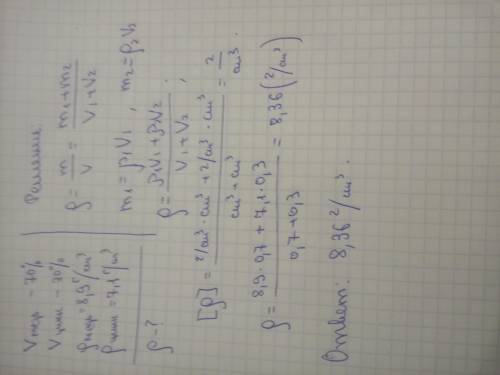 Vмер - 70%
Vцин - 30%
ρмер = 8,9 г/см³
ρцин = 7,1 г/см³
ρ - ?
Решение:
ρ = m/V = (m₁+m₂)/(V₁+V₂)
m₁ = ρ₁V₁ , m₂ = ρ₂V₂
ρ = (ρ₁V₁ + ρ₂V₂)/(V₁ + V₂) ;
[ρ] = (г/см³ · см³ + г/см³ · см³)/(см³ + см³) = г/см³ .
ρ = (8,9 · 0,7 + 7,1 · 0,3)/(0,7 + 0,3) = 8,36 (г/см³)
Ответ: 8,36 г/см³ .